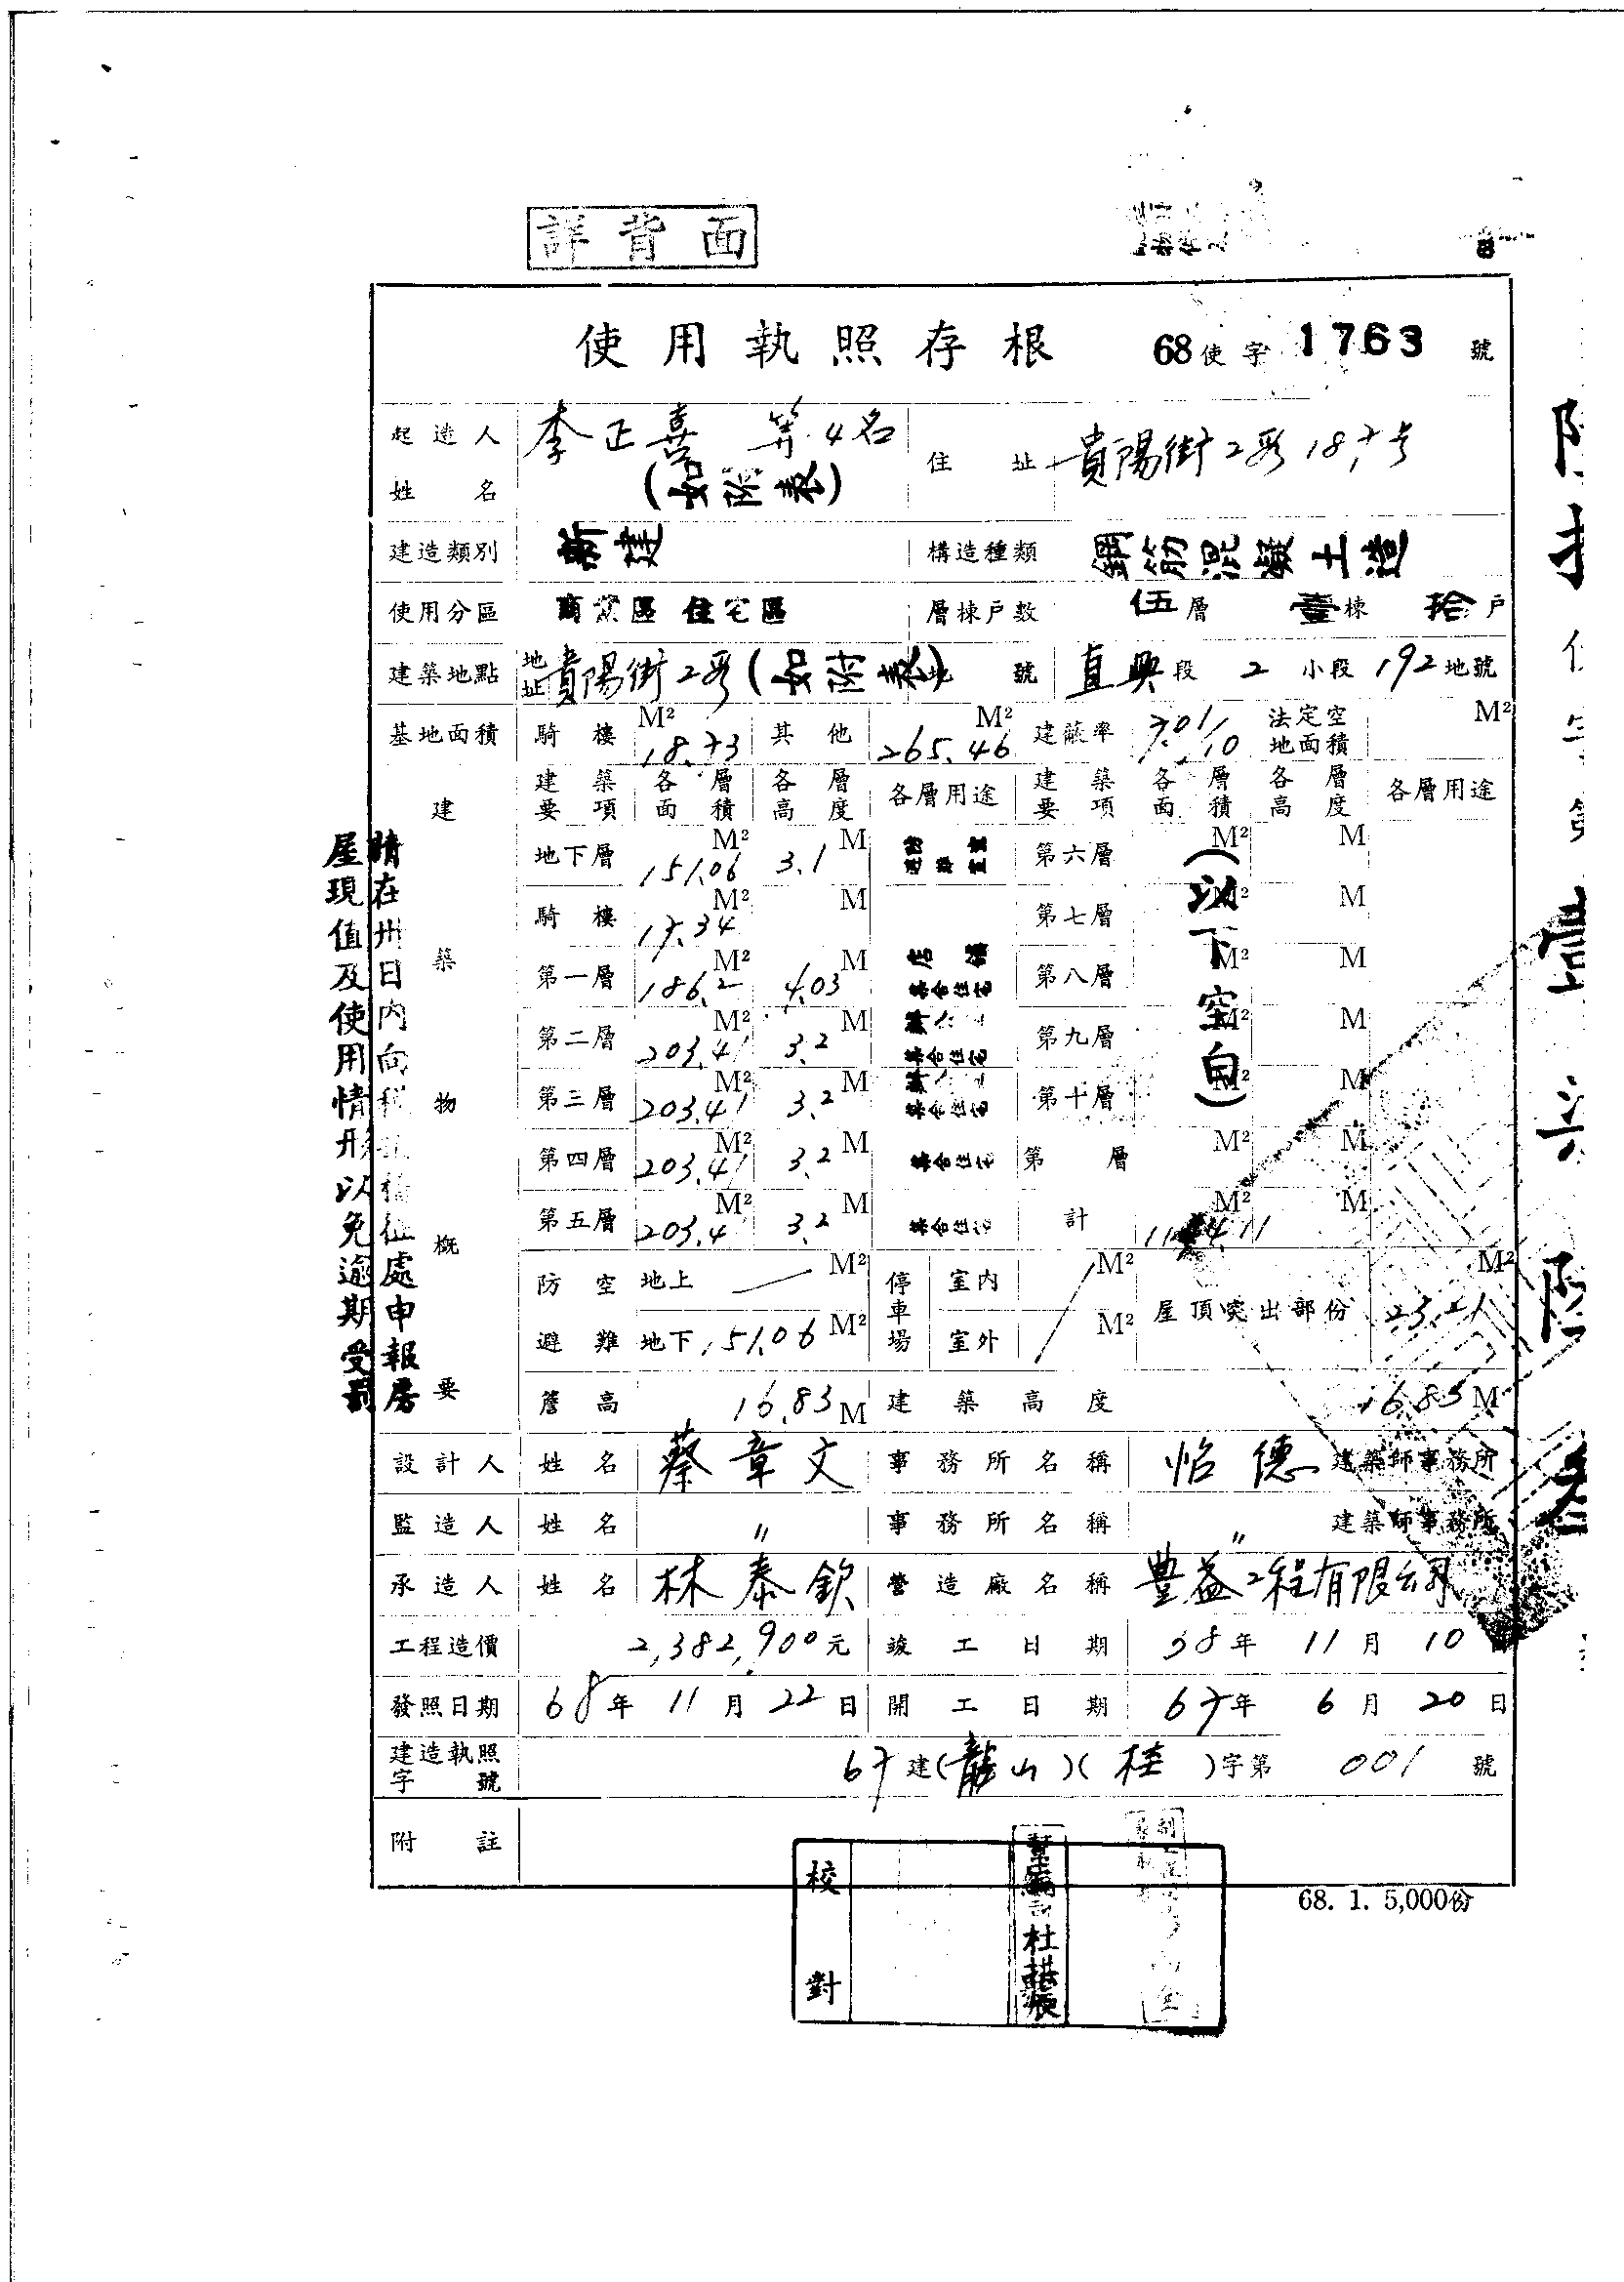 詳背面
使用執照存根 68使字 1763 號
起造人姓名 李正喜 等4名 (如附表) 住址 貴陽街2段187号
建造類別 新建 構造種類 鋼筋混凝土造
使用分區 商業區 住宅區 層棟戶數 伍層 壹棟 拾戶
建築地點 地址 貴陽街2段(如附表) 地號 直興段 2 小段 192 地號
基地面積 騎樓 18.73 M² 其他 265.46 M² 建蔽率 7.01/10 法定空地面積 M²
建築物概要 建築要項 各層面積 各層高度 各層用途 建築要項 各層面積 各層高度 各層用途
地下層 151.06 M² 3.1 M 第六層 M² M
騎樓 17.34 M² M 第七層 M² M
第一層 186.2 M² 4.03 M 店舖 集合住宅 第八層 M² M
第二層 203.41 M² 3.2 M 集合住宅 第九層 M² M
第三層 203.41 M² 3.2 M 集合住宅 第十層 M² M
第四層 203.41 M² 3.2 M 集合住宅 第 層 M² M
第五層 203.4 M² 3.2 M 集合住宅 計 M² M
(以下空白)
防空避難 地上 M² 停車場 室內 M² 屋頂突出部份 M²
地下 151.06 M² 室外 M²
簷高 16.83 M 建築高度 16.83 M
設計人 姓名 蔡章文 事務所名稱 怡德 建築師事務所
監造人 姓名 〃 事務所名稱 〃 建築師事務所
承造人 姓名 林泰欽 營造廠名稱 豊益工程有限公司
工程造價 2,382,900元 竣工日期 68年 11月 10日
發照日期 68年 11月 22日 開工日期 67年 6月 20日
建造執照字號 67建(龍山)(桂)字第 001 號
附註
請在卅日內向稅捐稽征處申報房
屋現值及使用情形以免逾期受罰
68. 1. 5,000份
校對